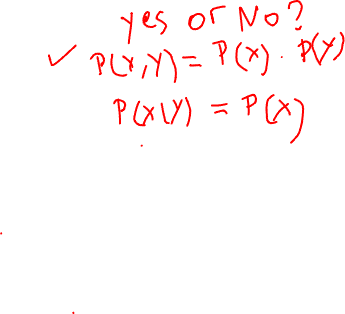 yes or No?
✓ P(X,Y) = P(X) . P(Y)
P(X|Y) = P(X)